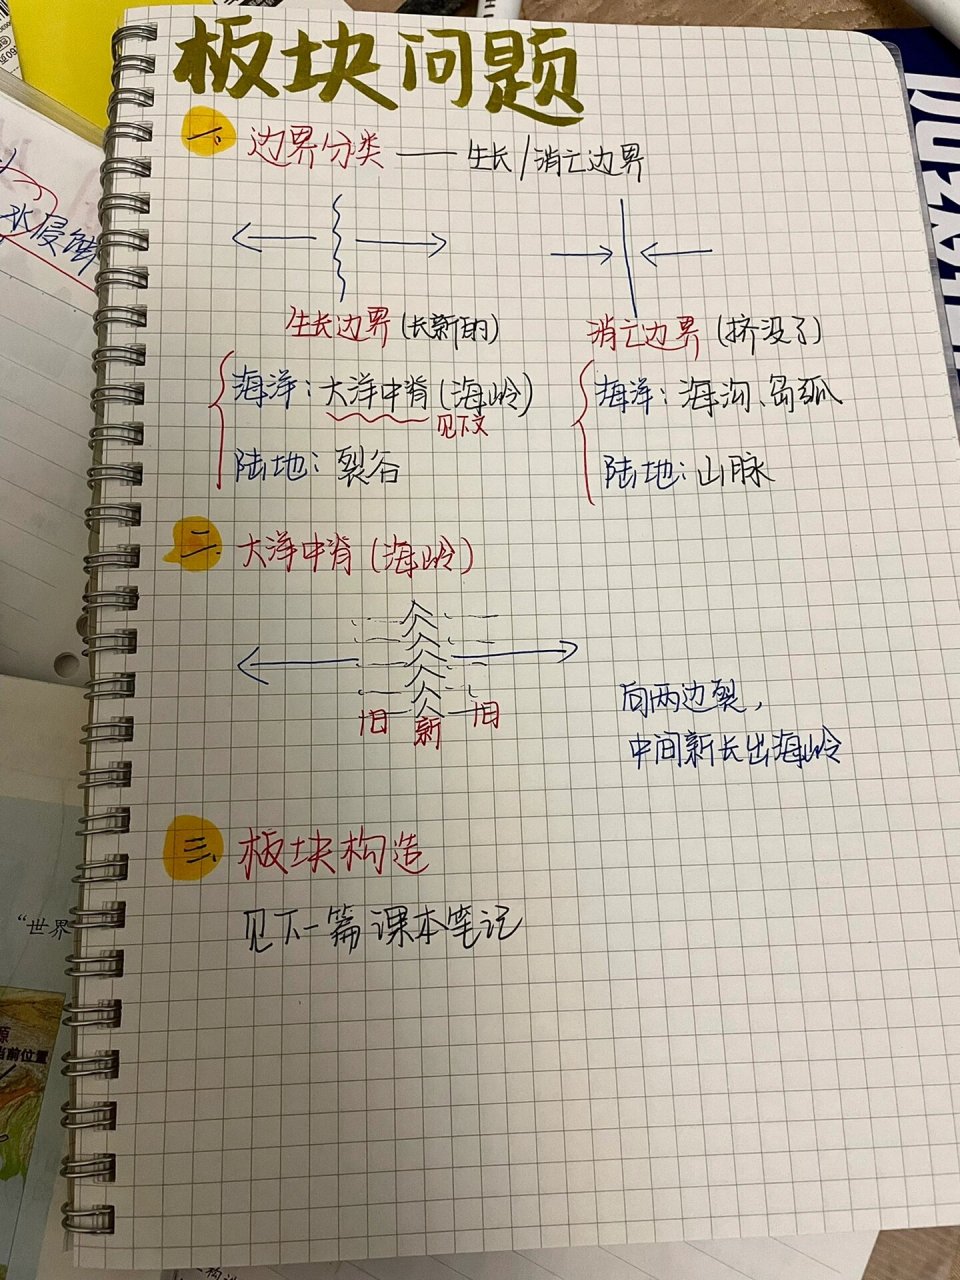 板块问题
一、边界分类 —— 生长/消亡边界
生长边界(长新的)
海洋：大洋中脊(海岭)
见下文
陆地：裂谷
消亡边界(挤没了)
海洋：海沟、岛弧
陆地：山脉
二、大洋中脊(海岭)
旧 新 旧
向两边裂，
中间新长出海岭
三、板块构造
见下一篇课本笔记
水侵蚀
“世界
当前位置